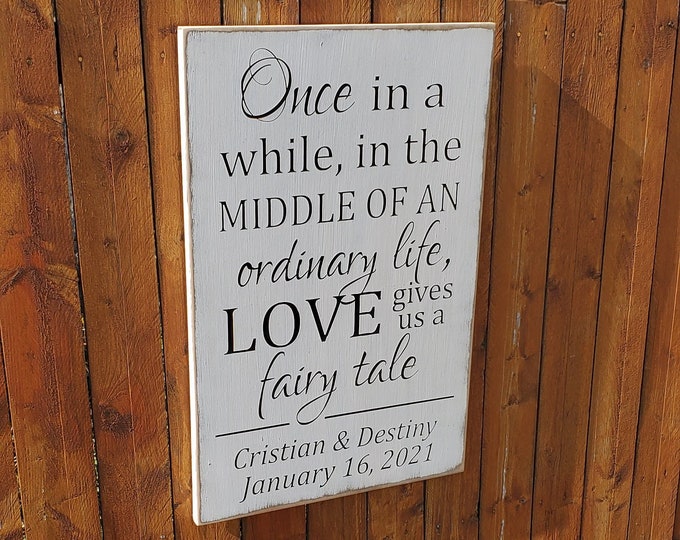 Once in a
while, in the
MIDDLE OF AN
ordinary life,
LOVE gives us a
fairy tale
Cristian & Destiny
January 16, 2021